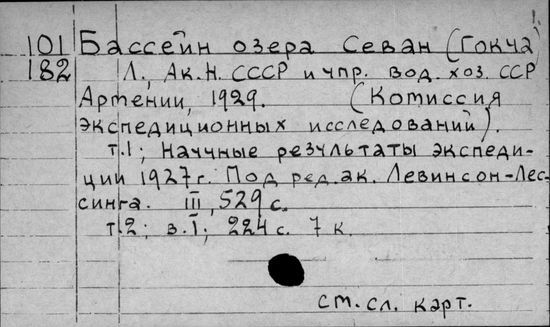 101 Бассейн озера Севан (Гокча)
182 Л., Ак.Н. СССР и Упр. вод. хоз. ССР
Армении, 1929. (Комиссия
экспедиционных исследований).
т.1; Научные результаты экспеди-
ции 1927 г. Под ред. ак. Левинсон-Лес-
синга. III, 529 с.
т.2; в. I; 224 с. 7 к.
см. сл. карт.